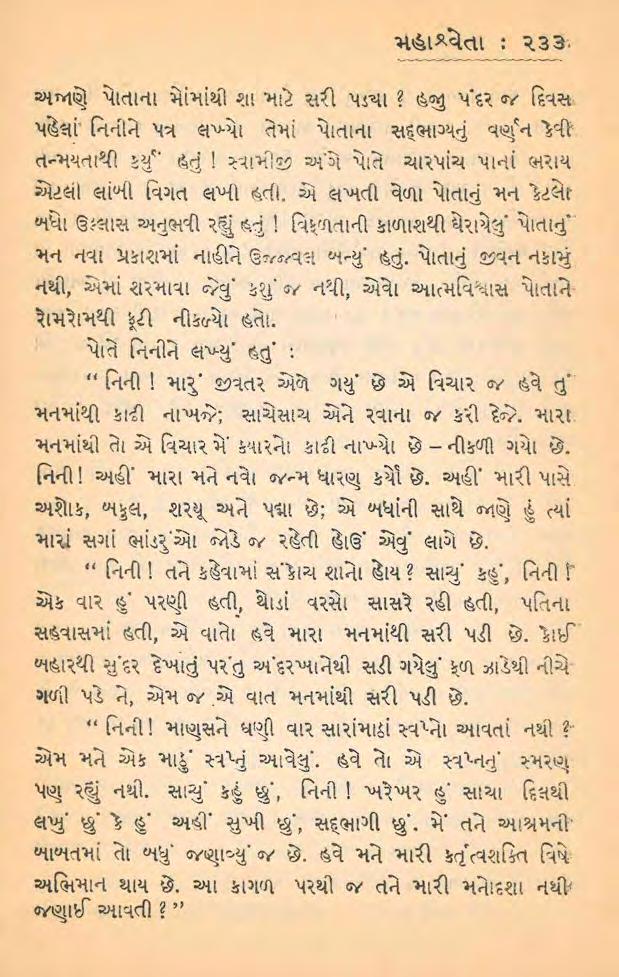 મહાશ્વેતા : ૨૩૩
અજાણે પોતાના મોંમાંથી શા માટે સરી પડ્યા ? હજી પંદર જ દિવસ
પહેલાં નિનીને પત્ર લખ્યો તેમાં પોતાના સદ્ભાગ્યનું વર્ણન કેવી
તન્મયતાથી કર્યું હતું ! સ્વામીજી અંગે પોતે ચારપાંચ પાનાં ભરાય
એટલી લાંબી વિગત લખી હતી. એ લખતી વેળા પોતાનું મન કેટલો
બધો ઉલ્લાસ અનુભવી રહ્યું હતું ! વિફળતાની કાળાશથી ઘેરાયેલું પોતાનું
મન નવા પ્રકાશમાં નાહીને ઉજ્જવલ બન્યું હતું. પોતાનું જીવન નકામું
નથી, એમાં શરમાવા જેવું કશું જ નથી, એવો આત્મવિશ્વાસ પોતાને
રોમરોમથી ફૂટી નીકળ્યો હતો.
પોતે નિનીને લખ્યું હતું :
“ નિની ! મારું જીવતર એળે ગયું છે એ વિચાર જ હવે તું
મનમાંથી કાઢી નાખજે; સાચેસાચ એને રવાના જ કરી દેજે. મારા
મનમાંથી તો એ વિચાર મેં ક્યારનો કાઢી નાખ્યો છે – નીકળી ગયો છે.
નિની! અહીં મારા મને નવો જન્મ ધારણ કર્યો છે. અહીં મારી પાસે
અશોક, બકુલ, શરયૂ અને પદ્મા છે; એ બધાંની સાથે જાણે હું ત્યાં
મારાં સગાં ભાંડરુંઓ જોડે જ રહેતી હોઉં એવું લાગે છે.
“ નિની ! તને કહેવામાં સંકોચ શાનો હોય? સાચું કહું, નિની !
એક વાર હું પરણી હતી, થોડાં વરસો સાસરે રહી હતી, પતિના
સહવાસમાં હતી, એ વાતો હવે મારા મનમાંથી સરી પડી છે. કોઈ
બહારથી સુંદર દેખાતું પરંતુ અંદરખાનેથી સડી ગયેલું ફળ ઝાડેથી નીચે
ગળી પડે ને, એમ જ એ વાત મનમાંથી સરી પડી છે.
“ નિની! માણસને ઘણી વાર સારાંમાઠાં સ્વપ્નો આવતાં નથી ?
એમ મને એક માઠું સ્વપ્નું આવેલું. હવે તો એ સ્વપ્નનું સ્મરણ
પણ રહ્યું નથી. સાચું કહું છું, નિની ! ખરેખર હું સાચા દિલથી
લખું છું કે હું અહીં સુખી છું, સદ્ભાગી છું. મેં તને આશ્રમની
બાબતમાં તો બધું જણાવ્યું જ છે. હવે મને મારી કર્તૃત્વશક્તિ વિષે
અભિમાન થાય છે. આ કાગળ પરથી જ તને મારી મનોદશા નથી
જણાઈ આવતી ? ”